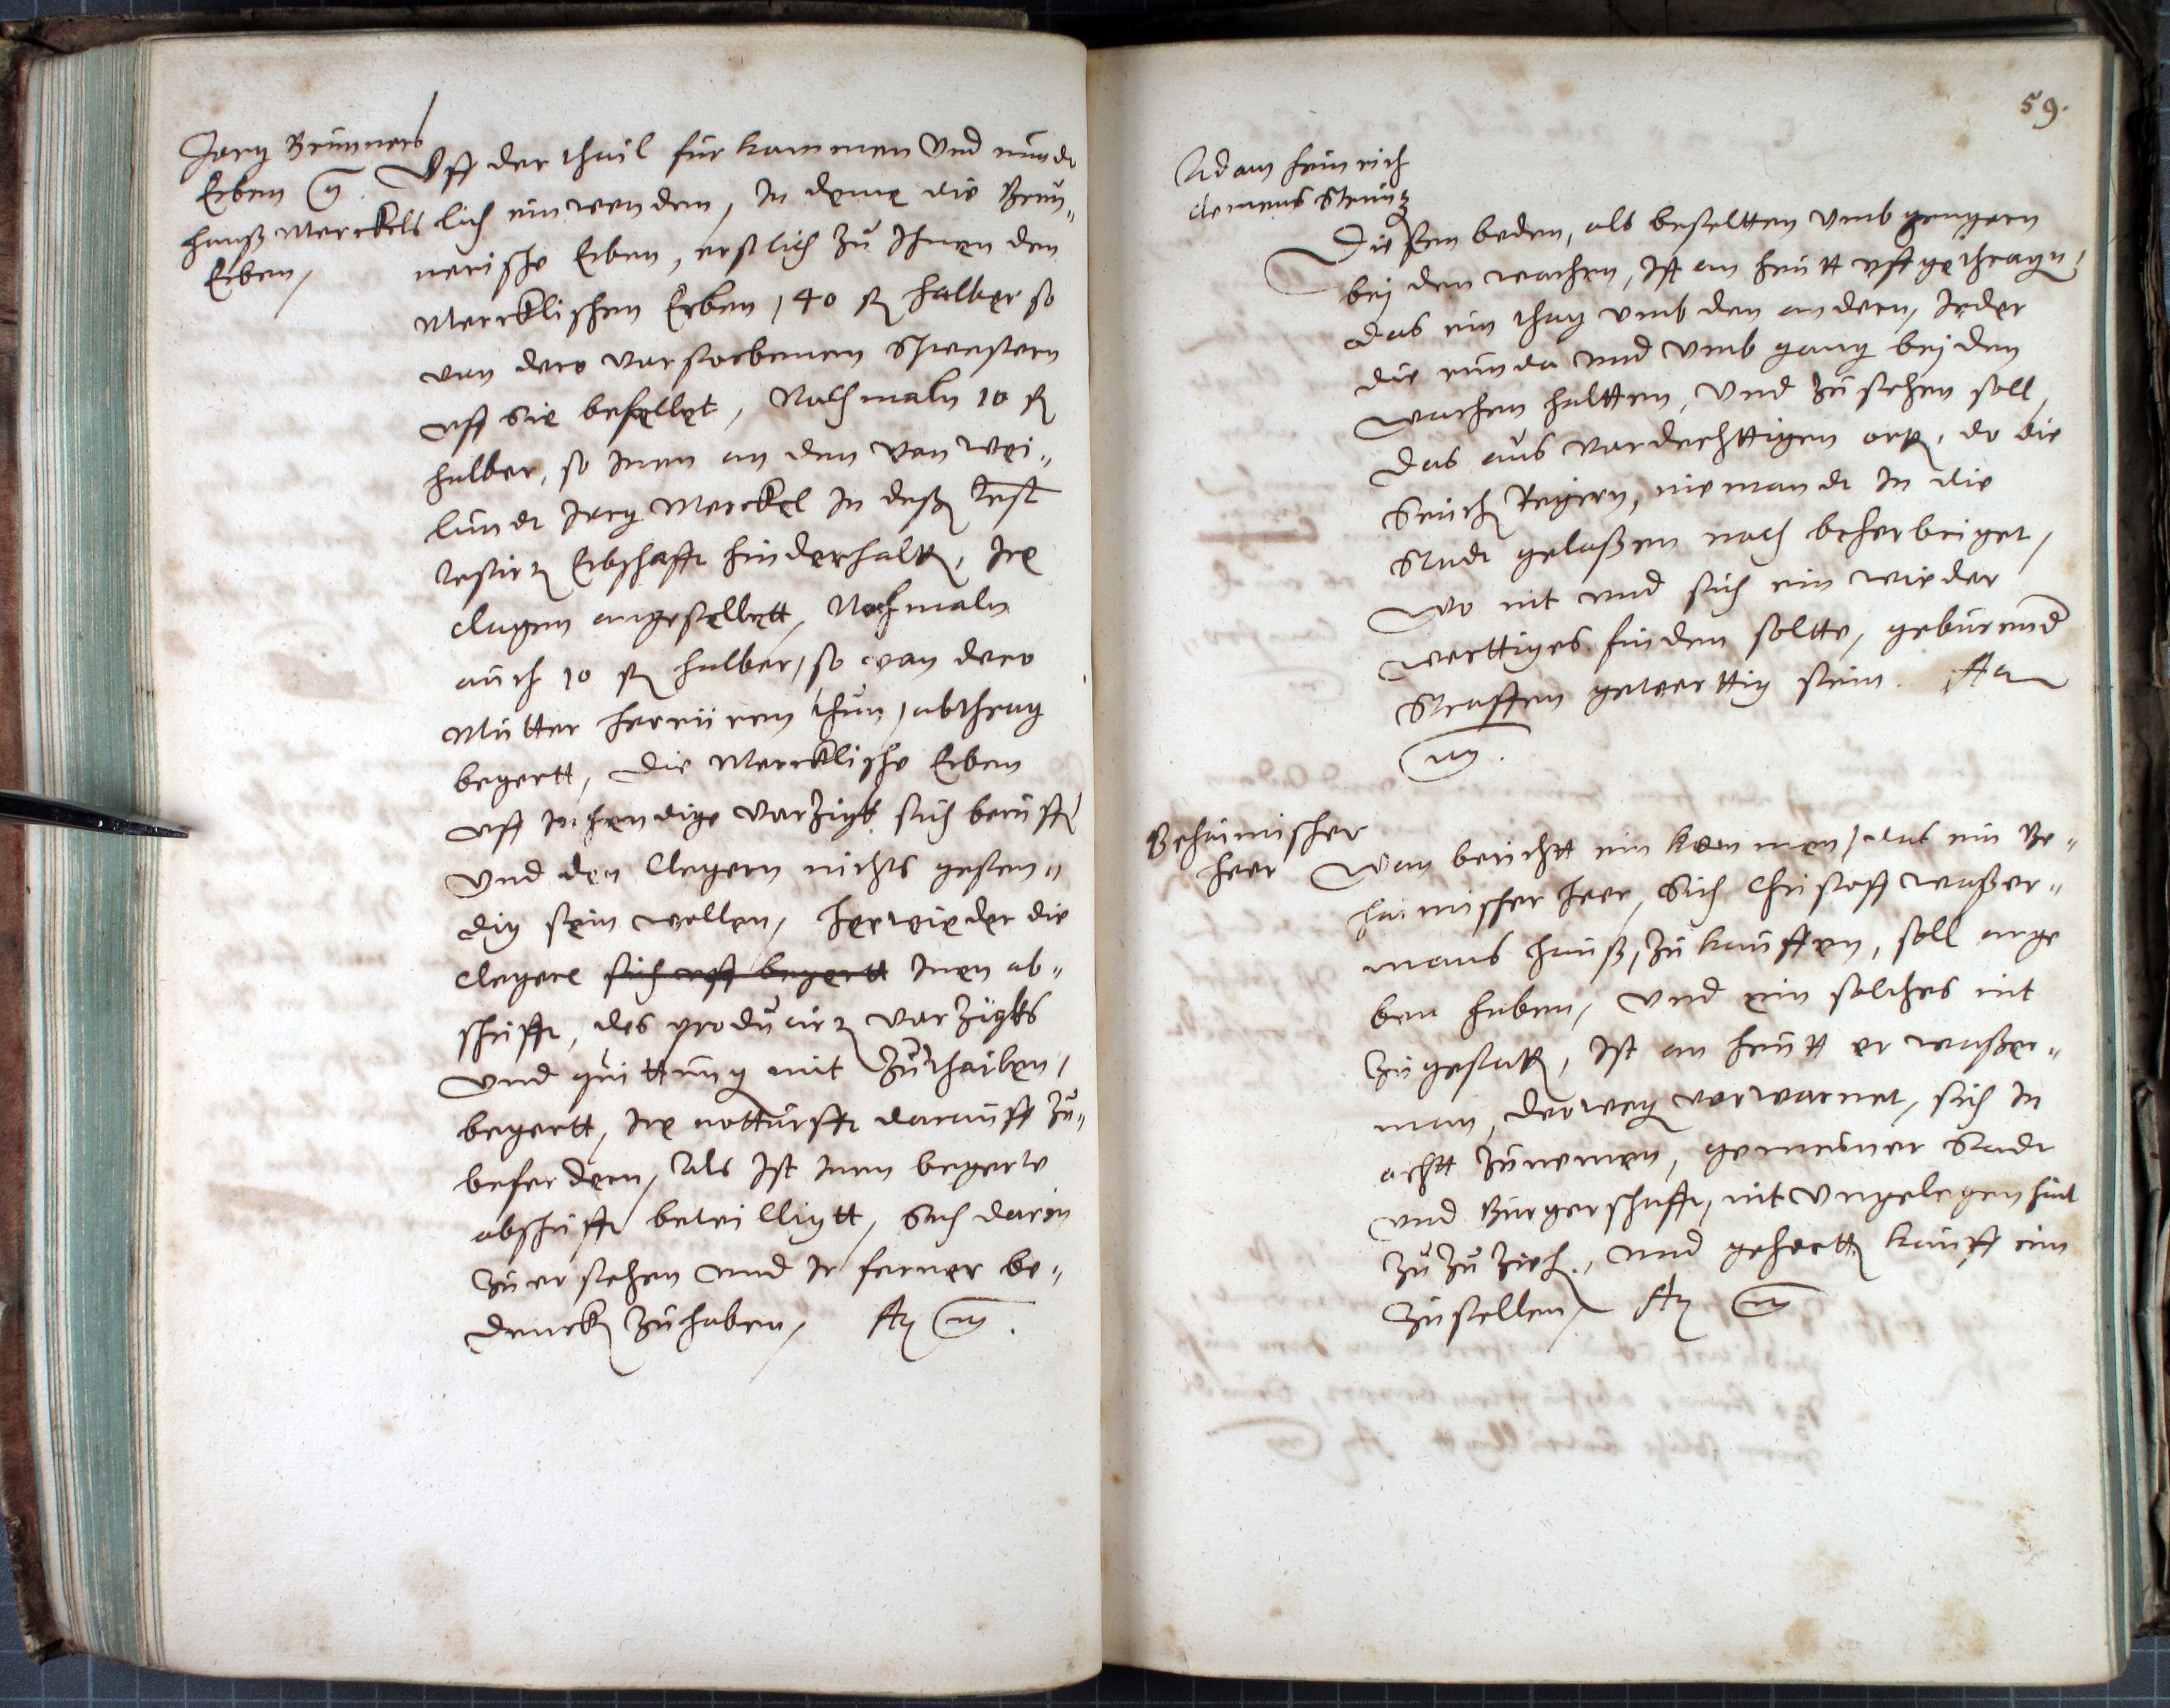 Jorg Brunners
Erben
Hanß Merckels
Erben,
Uff der thail fürkommen und mundt
lich einwenden, In deme die Brun„
nerische Erben, erstlich zu Ihnen den
Mercklischen Erben, 40 fl halber so
von dero verstorbenen Schwestern
uff sie befellet, Nachmaln 10 fl
halber, so Inen an den von wei„
landt Jorg Merckel In deß Test
testirt Erbschafft hinderhalten, Ire
clagen angestellett, Nachmaln
auch 10 fl halber, so von dero
Mutter herrüren thun, abthrag
begertt, Die Mercklische Erben
uff Inhendige Verzigk sich beruffen
Und den Clegern nichts gesten„
dig sein wollen, Herwieder die
Cleger sich uff begertt Inen ab„
schrifft, des producirten Verzigks
und quittung mit Zuthailen,
begertt, Ire notturfft darauff zu„
befordern, Als Ist Inen begerte
abschrifft bewilligtt, Sich darin
zuersehen und Ir ferner be„
dencken zuhaben,
59.
Adam Heinrich
Clemens
Diesßen beden, als bestellten Umbgengern
bej den wachen, Ist an heutt ufferthragen,
das ein thag umb den andern, Jeder
die runda und umbgang bej den
wachen haltten, Und zusehen soll,
Das aus verdechttigen orten, do die
Seuch Regiren, niemandt In die
Stadt gelaßen noch beherbriget,
Wo nit und sich ein wieder
werttiges finden soltte, geburend
Straffen gewerttig sein.
Behaimischer
Herr
Von bericht einkommen, das ein Be„
haimischer Herr, Sich Christoff waßer„
mans Hauß, zukauffen, soll ange
ben haben, Und ein solches nit
zugestatten, Ist an heutt er waßer„
man, derwegen verwarnet, sich In
achtt zunemen, gemeiner Stadt
und Burgerschafft, nit Ungelegenheit
zuzuZieh., und gehertten kauff ein
zustellen,